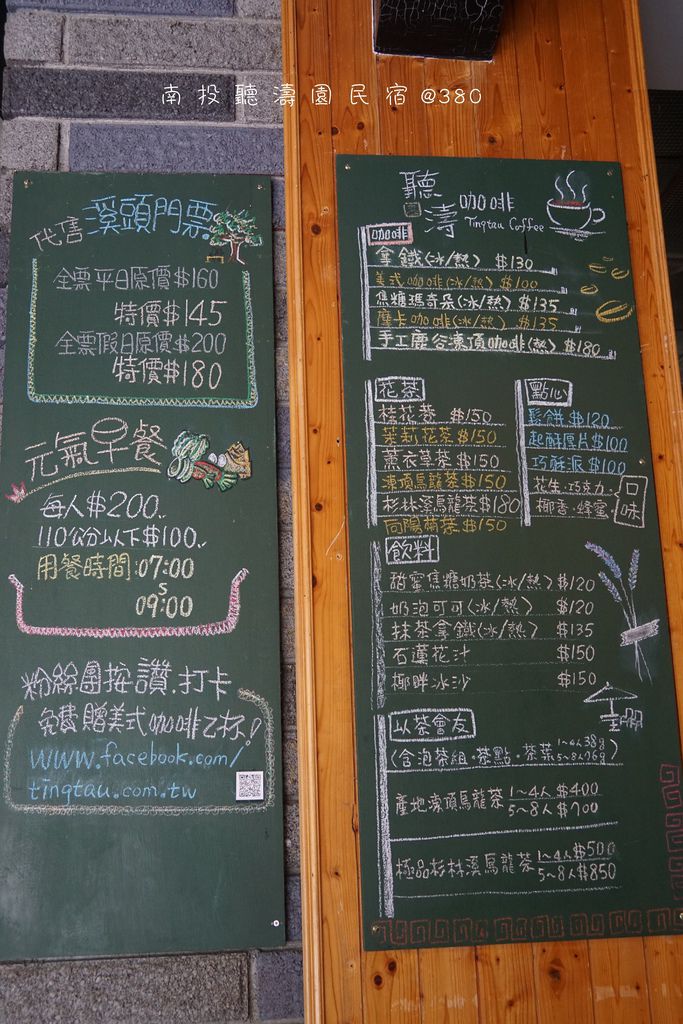 南投聽濤園民宿@380
代售溪頭門票
全票平日原價$160
特價$145
全票假日原價$200
特價$180
元氣早餐
每人$200.
110公分以下$100.
用餐時間:07:00
S
09:00
粉絲團按讚.打卡
免費贈美式咖啡乙杯!
www.facebook.com/
tingtau.com.tw
聽濤咖啡
Tingtau Coffee
咖啡
拿鐵(冰/熱) $130
美式咖啡(冰/熱) $100
焦糖瑪奇朵(冰/熱) $135
摩卡咖啡(冰/熱) $135
手工鹿谷凍頂咖啡(熱) $180
花茶
桂花釀 $150
茉莉花茶 $150
薰衣草茶 $150
凍頂烏龍茶 $150
杉林溪烏龍茶 $180
向陽蒜茶 $150
點心
鬆餅 $120
起酥厚片 $100
巧酥派 $100
花生.巧克力.
椰香.蜂蜜
口味
飲料
甜蜜焦糖奶茶(冰/熱) $120
奶泡可可(冰/熱) $120
抹茶拿鐵(冰/熱) $135
石蓮花汁 $150
椰畔冰沙 $150
以茶會友
(含泡茶組.茶點.茶葉 1~4人38g 5~8人76g)
產地凍頂烏龍茶 1~4人$400
5~8人$700
極品杉林溪烏龍茶 1~4人$500
5~8人$850